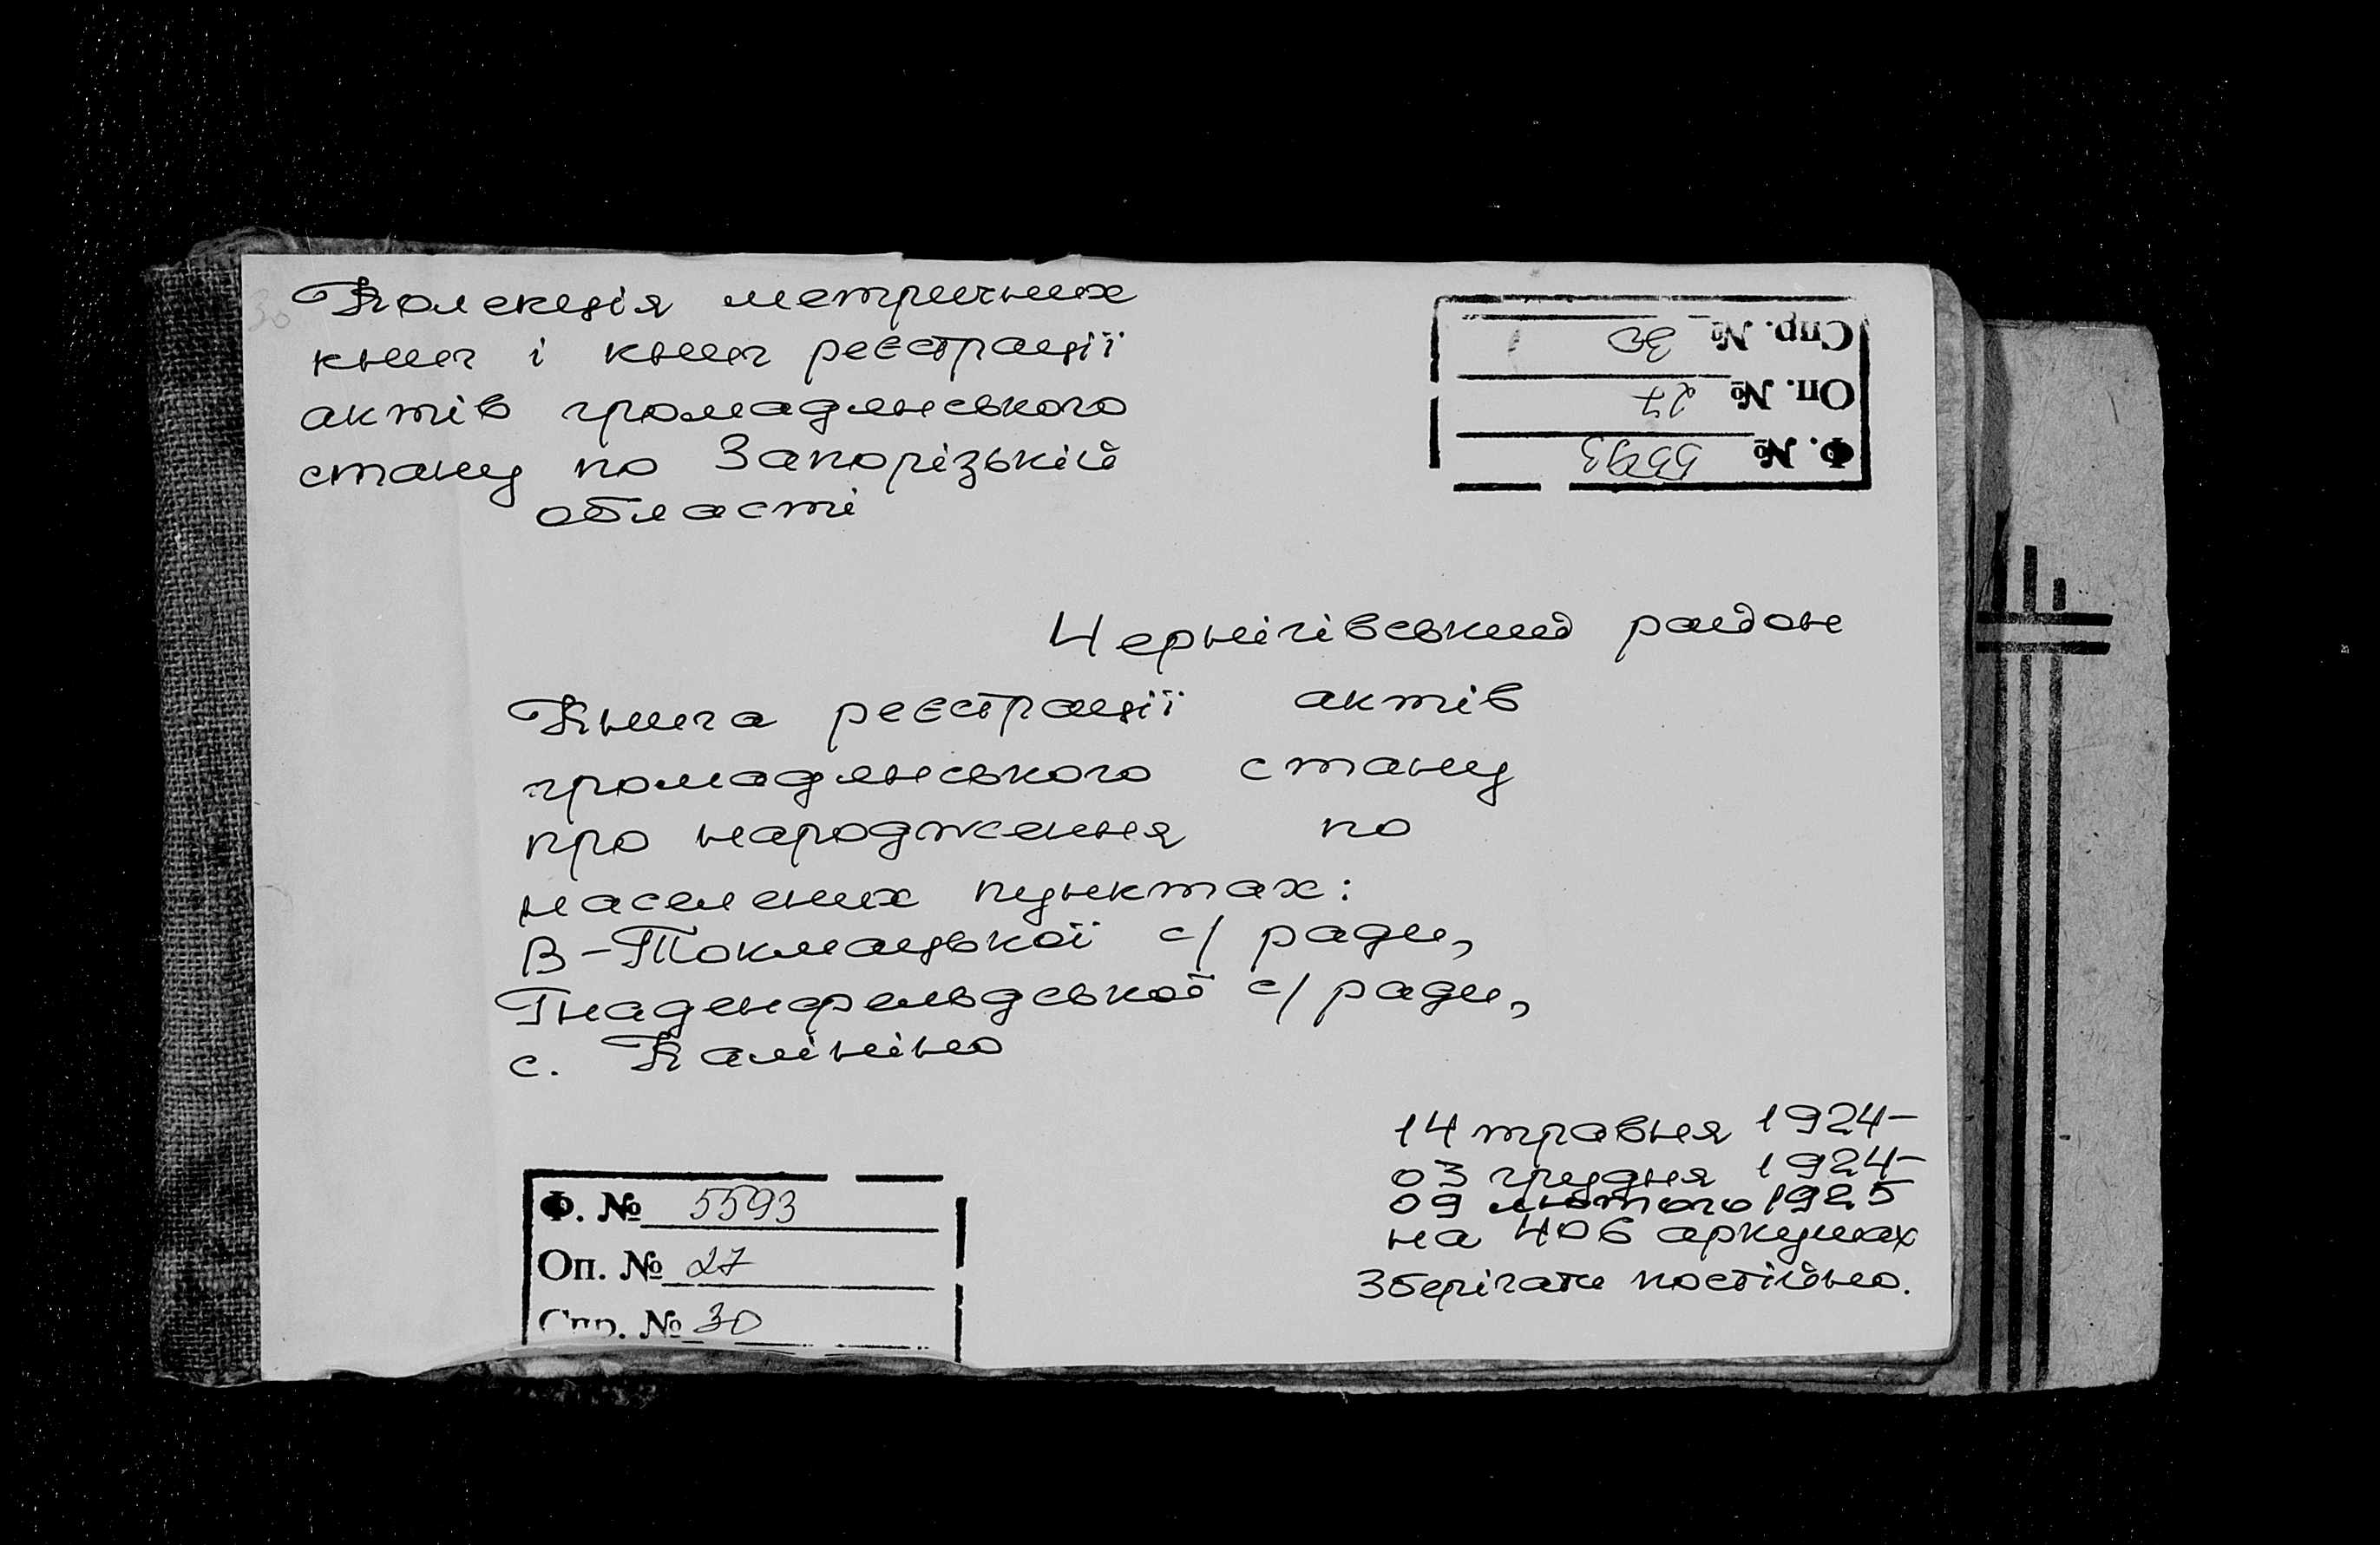 Колекція метричних
книг і книг реєстрації
актів громадянського
стану по Запорізькій
області
Спр. № 30
Оп. № 27
Ф. № 5593
Чернігівський район
Книга реєстрації актів
громадянського стану
про народження по
населених пунктах:
В-Токмацької с/ ради,
Гнаденфельдської с/ ради,
с. Калініно
14 травня 1924-
03 грудня 1924-
09 лютого 1925
на 406 аркушах
Зберігати постійно.
Ф. № 5593
Оп. № 27
Спр. № 30